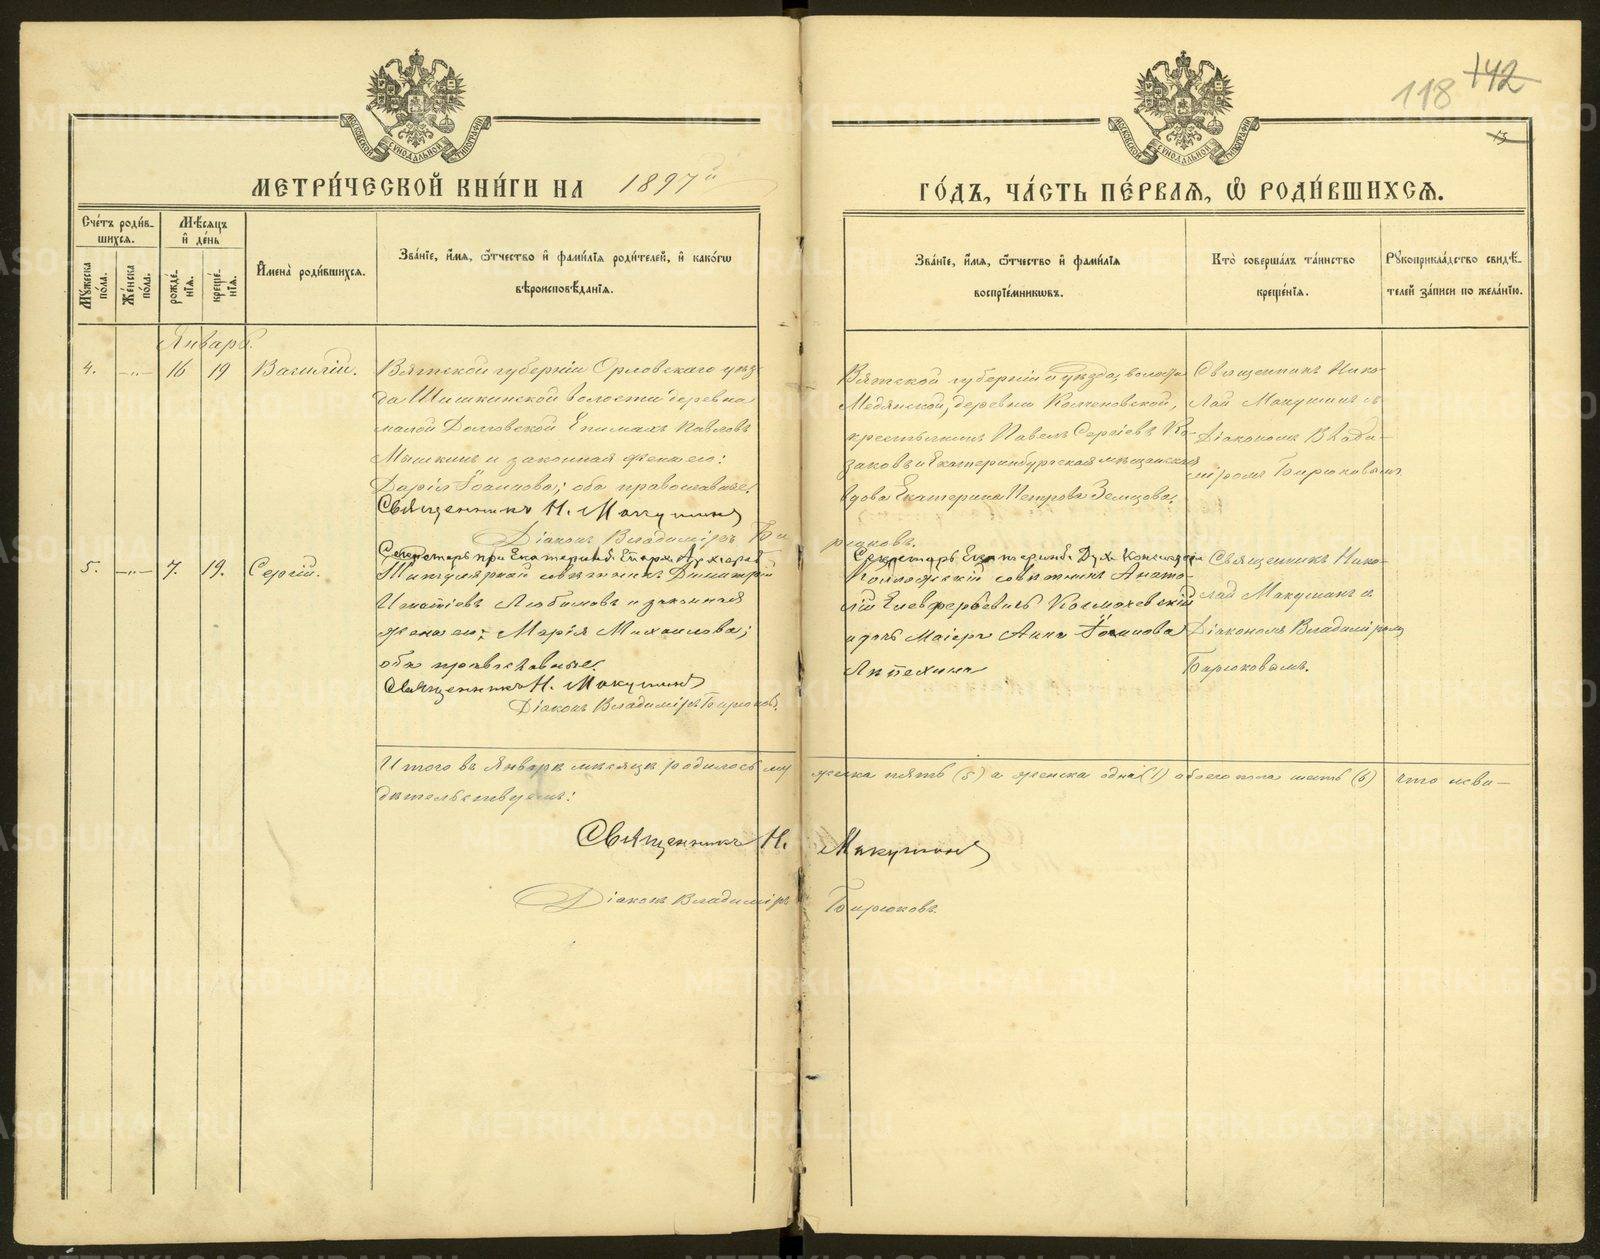 118 142
13
МОСКОВСКОЙ СѴНОДАЛЬНОЙ ТИПОГРАФІИ
МОСКОВСКОЙ СѴНОДАЛЬНОЙ ТИПОГРАФІИ
МЕТРИ́ЧЕСКОЙ КНИ́ГИ НА 1897й
ГО́ДЪ, ЧА́СТЬ ПЕ́РВАЯ, Ѽ РОДИ́ВШИХСЯ.
Сче́тъ роди́в-
шихся.
Мѣ́сяцъ
и҆ де́нь
Му́жеска по́ла.
Же́нска по́ла.
рожде́-нія.
креще́-нія.
И҆мена̀ роди́вшихся.
Зва́ніе, и҆́мя, ѻ҆́тчество и҆ фами́лія роди́телей, и҆ како́гѡ
вѣроисповѣ́данія.
Зва́ніе, и҆́мя, ѻ҆́тчество и҆ фами́лія
воспріе́мниковъ.
Кто̀ соверша́лъ та́инство
креще́нія.
Рꙋкоприкла́дство свидѣ́-
телей за́писи по жела́нію.
Январь.
4. —"— 16 19 Василій.
Вятской губерніи Орловскаго уѣз-
да Шишкинской волости деревни
малой Долговской Епимахъ Павловъ
Мышкинъ и законная жена его:
Дарія Іоаннова; оба православные.
Священникъ Н. Макушинъ
Діаконъ Владиміръ Би
рюковъ.
Вятской губерніи и уѣзда, волости
Медянской, деревни
крестьянинъ Павелъ Сергіевъ Ко-
заковъ и Екатеринбургская мѣщанская
вдова Екатерина Петрова Земцова.
Священникъ Нико-
лай Макушинъ съ
Діакономъ Влади-
міромъ Бирюковымъ
5. —"— 7. 19. Сергій.
Секретарь при Екатеринб. Епарх. Архіереѣ
Титулярный совѣтникъ Димитрій
Игнатіевъ Любимовъ и законная
жена его: Марія Михаилова;
оба православные.
Священникъ Н. Макушинъ
Діаконъ Владиміръ Бирюковъ.
Секретарь Екатеринб. Дух. Консисторіи
Коллежскій совѣтникъ Анато-
лій Елевферьевичъ
и дочь Маіора Анна Іоаннова
Священникъ Нико-
лай Макушинъ и
Діаконъ Владиміромъ
Бирюковымъ.
Итого въ Январѣ мѣсяцѣ родилось му
жеска пять (5) а женска одна (1) обоего пола шесть (6) что сви-
дѣтельствуемъ:
Священникъ Н. Макушинъ
Діаконъ Владиміръ Бирюковъ.
METRIKI.GASO-URAL.RU